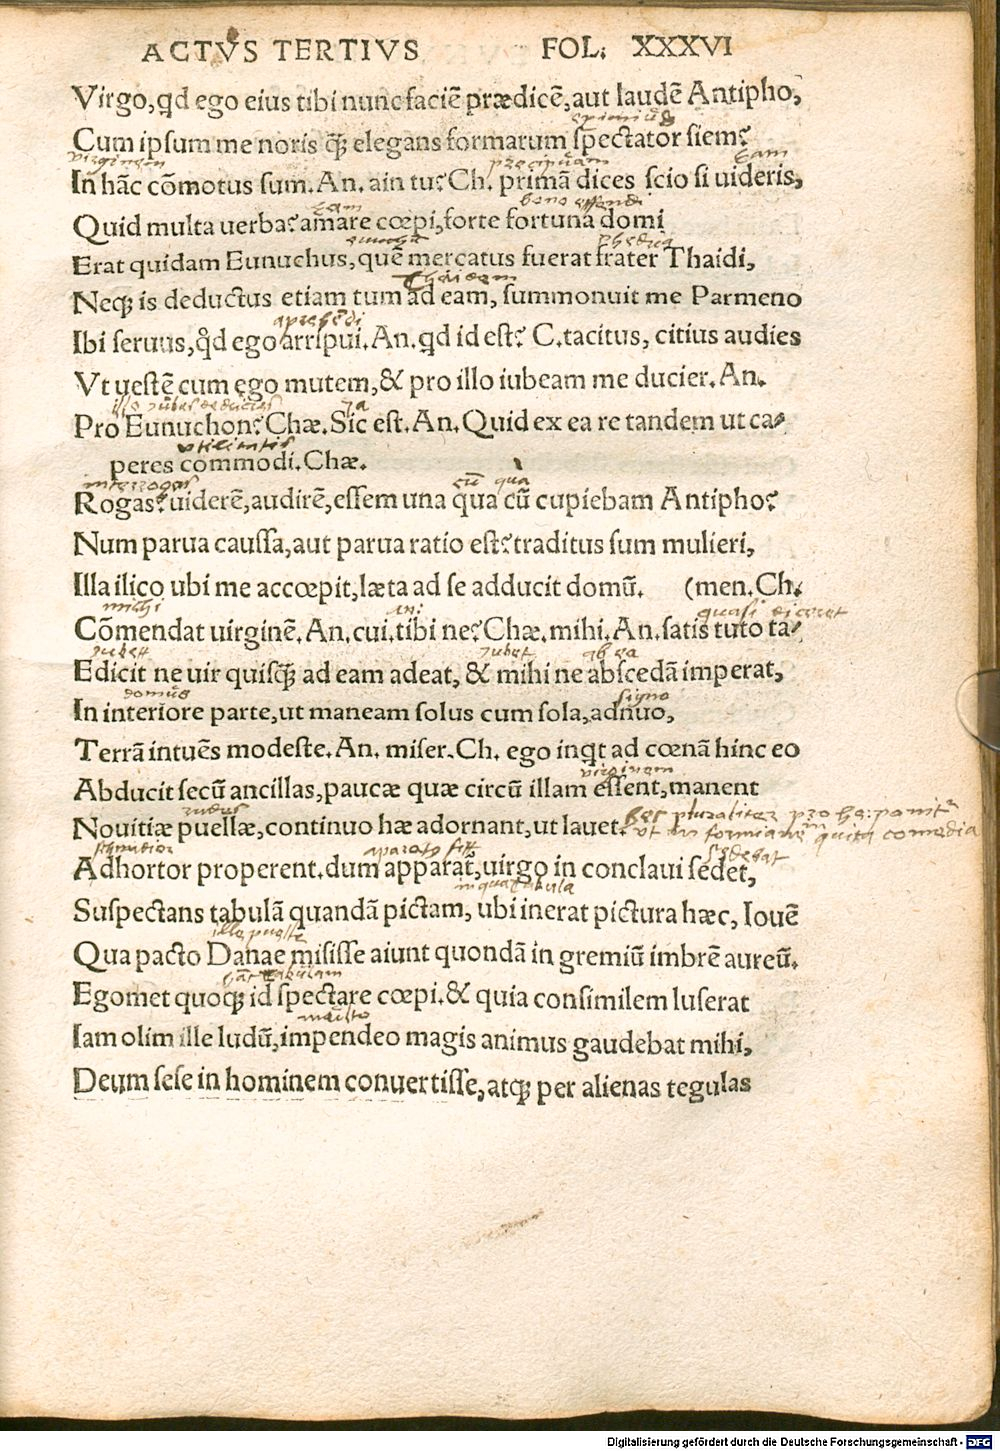 ACTVS TERTIVS FOL: XXXVI
Virgo, qd ego eius tibi nunc faciẽ prædicẽ, aut laudẽ Antipho,
eximiũs
Cum ipsum me noris q̃ꝫ elegans formarum spectator siem?
virginem præcipuam Eam
In hãc cõmotus sum. An. ain tu? Ch. primã dices scio si uideris,
eam bono
Quid multa uerba? amare cœpi, forte fortuna domi
phedria
Erat quidam Eunuchus, quẽ mercatus fuerat frater Thaidi,
Thaidem
Neqꝫ is deductus etiam tum ad eam, summonuit me Parmeno
aprehẽdi
Ibi seruus, qd̊ ego arripui. An. qd id est? C. tacitus, citius audies
Vt uestẽ cum ego mutem, & pro illo iubeam me ducier. An.
ita
Pro Eunuchon? Chæ. Sic est. An. Quid ex ea re tandem ut ca⸗
utilitatis
peres commodi. Chæ.
interrogas cũ qua
Rogas? uiderẽ, audirẽ, essem una qua cũ cupiebam Antipho?
Num parua caussa, aut parua ratio est? traditus sum mulieri,
Illa ilico ubi me accœpit, læta ad se adducit domũ. (men. Ch.
michi an: quasi diceret
Cõmendat uirginẽ. An. cui. tibi ne? Chæ. mihi. An. satis tuto ta⸗
jubet jubet ab ea
Edicit ne uir quisq̃ꝫ ad eam adeat, & mihi ne abscedã imperat,
domus signo
In interiore parte, ut maneam solus cum sola, adnuo,
Terrã intuẽs modeste. An. miser. Ch. ego inqt ad cœnã hinc eo
virginem
Abducit secũ ancillas, paucæ quæ circũ illam essent, manent
rudes hec pluraliter pro he: ponitr̃
Nouitiæ puellæ, continuo hæ adornant, ut lauet. ut in formione quita comedia
sedebat
Adhortor properent. dum apparat̃, uirgo in conclaui sedet,
in qua tabula
Suspectans tabulã quandã pictam, ubi inerat pictura hæc, Iouẽ
Qua pacto Danae misisse aiunt quondã in gremiũ imbrẽ aureũ.
hãc tabulam
Egomet quoqꝫ id spectare cœpi. & quia consimilem luserat
Iam olim ille ludũ, impendeo magis animus gaudebat mihi,
Deum sese in hominem conuertisse, atqꝫ per alienas tegulas
Digitalisierung gefördert durch die Deutsche Forschungsgemeinschaft - DFG